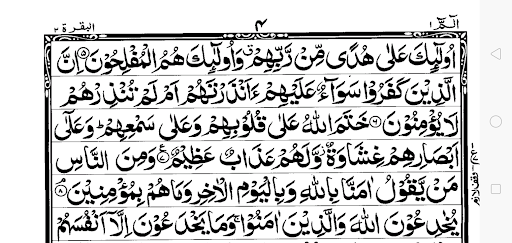 البقرة ٢ ٤ الٓمّٓ ١
اُولٰٓئِكَ عَلٰى هُدًى مِّنْ رَّبِّهِمْ ۙ وَاُولٰٓئِكَ هُمُ الْمُفْلِحُوْنَ ۝٥ اِنَّ
الَّذِيْنَ كَفَرُوْا سَوَآءٌ عَلَيْهِمْ ءَاَنْذَرْتَهُمْ اَمْ لَمْ تُنْذِرْهُمْ
لَا يُؤْمِنُوْنَ ۝٦ خَتَمَ اللّٰهُ عَلٰى قُلُوْبِهِمْ وَعَلٰى سَمْعِهِمْ ؕ وَعَلٰٓى
اَبْصَارِهِمْ غِشَاوَةٌ ؗ وَّلَهُمْ عَذَابٌ عَظِيْمٌ ۝٧ وَمِنَ النَّاسِ
مَنْ يَّقُوْلُ اٰمَنَّا بِاللّٰهِ وَبِالْيَوْمِ الْاٰخِرِ وَمَا هُمْ بِمُؤْمِنِيْنَ ۝٨
يُخٰدِعُوْنَ اللّٰهَ وَالَّذِيْنَ اٰمَنُوْا ۚ وَمَا يَخْدَعُوْنَ اِلَّآ اَنْفُسَهُمْ